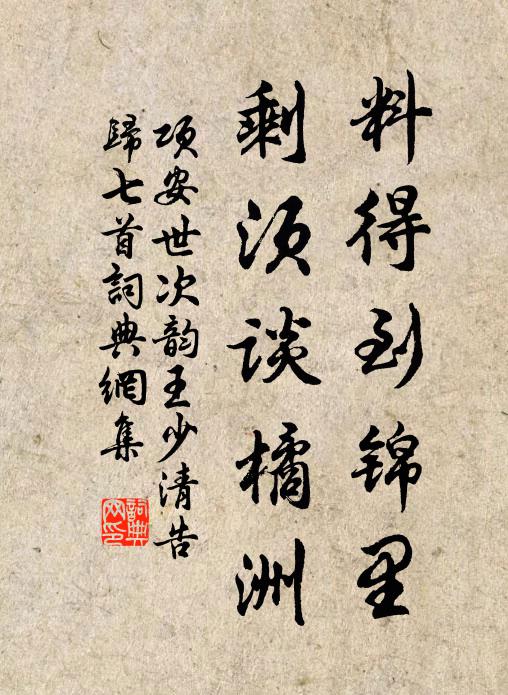 料得到锦里
剩须谈橘洲
项安世次韵王少清告
歸七首詞典網集
詞典網印